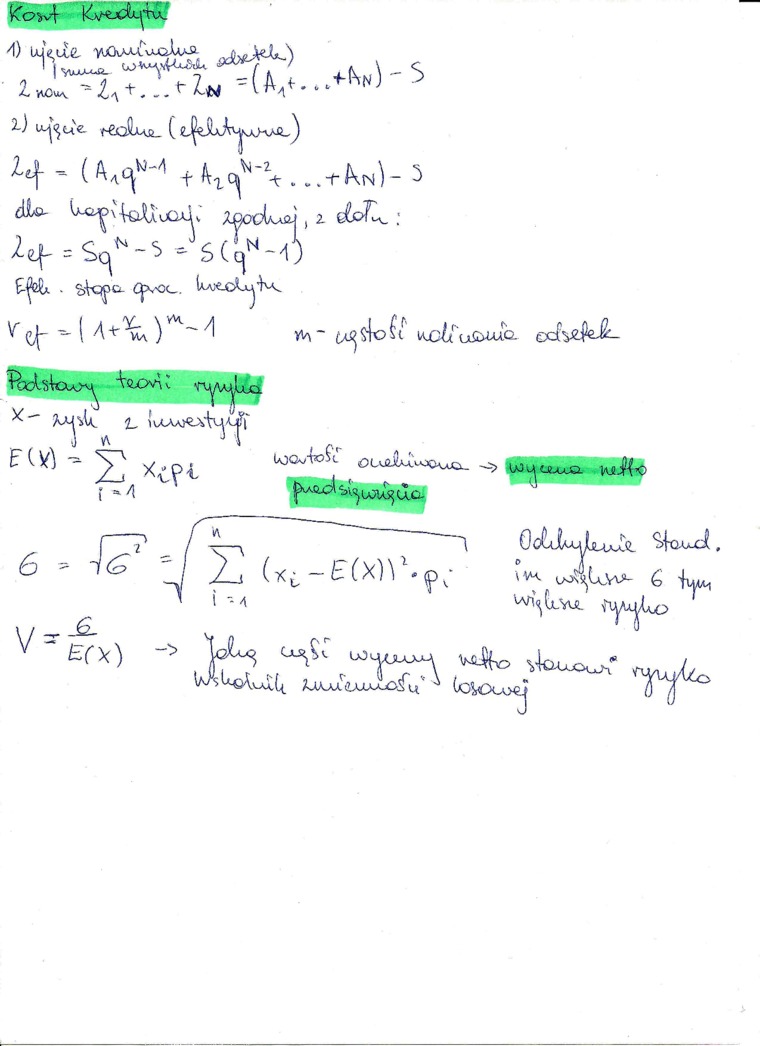 Koszt Kredytu
1) ujęcie nominalne
(suma wszystkich odsetek)
Z nom = Z₁ + ... + Z_N = (A₁ + ... + A_N) – S
2) ujęcie realne (efektywne)
Z ef = (A₁q^(N-1) + A₂q^(N-2) + ... + A_N) – S
dla kapitalizacji zgodnej, z dołu:
Z ef = Sq^N – S = S(q^N – 1)
Efek. stopa proc. kredytu
r ef = (1 + r/m)^m – 1 m – częstość naliczania odsetek
Podstawy teorii ryzyka
X – zysk z inwestycji
E(X) = ∑_{i=1}^{n} x_i p_i wartość oczekiwana → wycena netto
przedsięwzięcia
σ = √σ² = √(∑_{i=1}^{n} (x_i – E(X))² · p_i)
Odchylenie Stand.
im większe σ tym
większe ryzyko
V = σ/E(X) → Jaką część wyceny netto stanowi ryzyko
Wskaźnik zmienności losowej